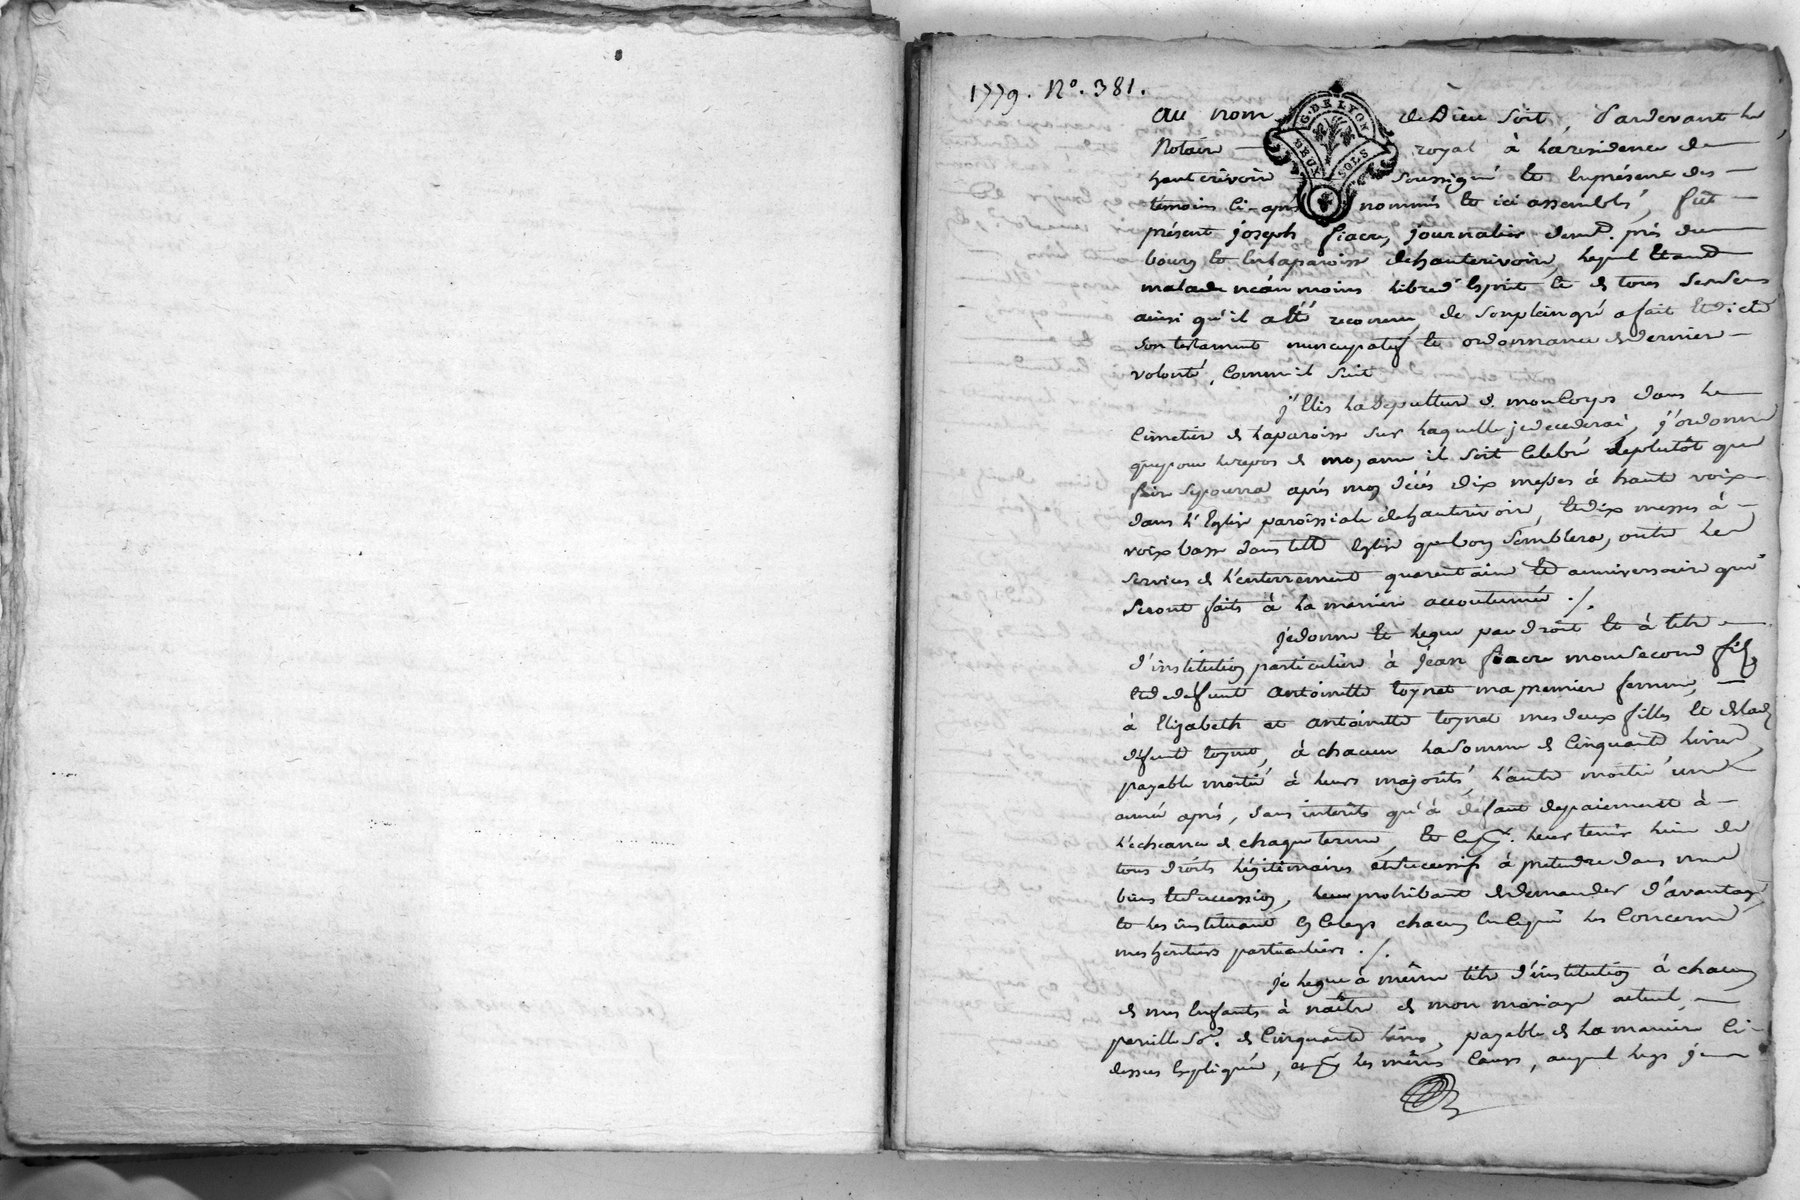 1779. N°. 381.
G. DE LYON
DEUX SOLS
au nom de Dieu soit, Pardevant le
Notaire royal à la residence de
hauterivoire soussigné et en présence des
témoins ci-après nommés et ici assemblés, fut
présent joseph fiacre, journalier demt. près du
bourg et en la paroisse de hauterivoire, lequel étant
malade néanmoins libre d'esprit et de tous ses sens
ainsi qu'il a été reconnu, de son plein gré a fait et dicté
son testament nuncupatif et ordonnance de dernière
volonté, comme il suit
j'élis la sépulture de mon corps dans le
cimetière de la paroisse sur laquelle je decederai, j'ordonne
que pour le repos de mon ame il soit celebré le plutôt que
faire se pourra après mon décès dix messes à haute voix
dans l'Eglise paroissiale de hauterivoire, et dix messes à
voix basse dans telle Eglise que bon semblera, outre les
services de l'enterrement quarentaine et anniversaire qui
seront faits à la maniere accoutumée ./.
je donne et legue par droit et à titre
d'institution particuliere à jean fiacre mon second fils
et de défunte antoinette toynet ma premiere femme,
à Elizabeth et antoinette toynet mes deux filles et de lad.
défunte toynet, à chacun la somme de cinquante livres,
payable moitié à leurs majorités, l'autre moitié une
année après, sans interêts qu'à défaut de paiement à
l'echeance de chaque terme, et ce pr. leur tenir lieu de
tous droits légitimaires et successifs à pretendre dans mes
biens et succession, leur prohibant de demander d'avantage
et les instituant en ce legs chacun en ce qui les concerne
mes heritiers particuliers ./.
je legue à même titre d'institution à chacun
de mes enfants à naître de mon mariage actuel
pareille so.e de cinquante livres, payable de la maniere ci-
dessus expliquée, et pr les mêmes causes, auquel legs je